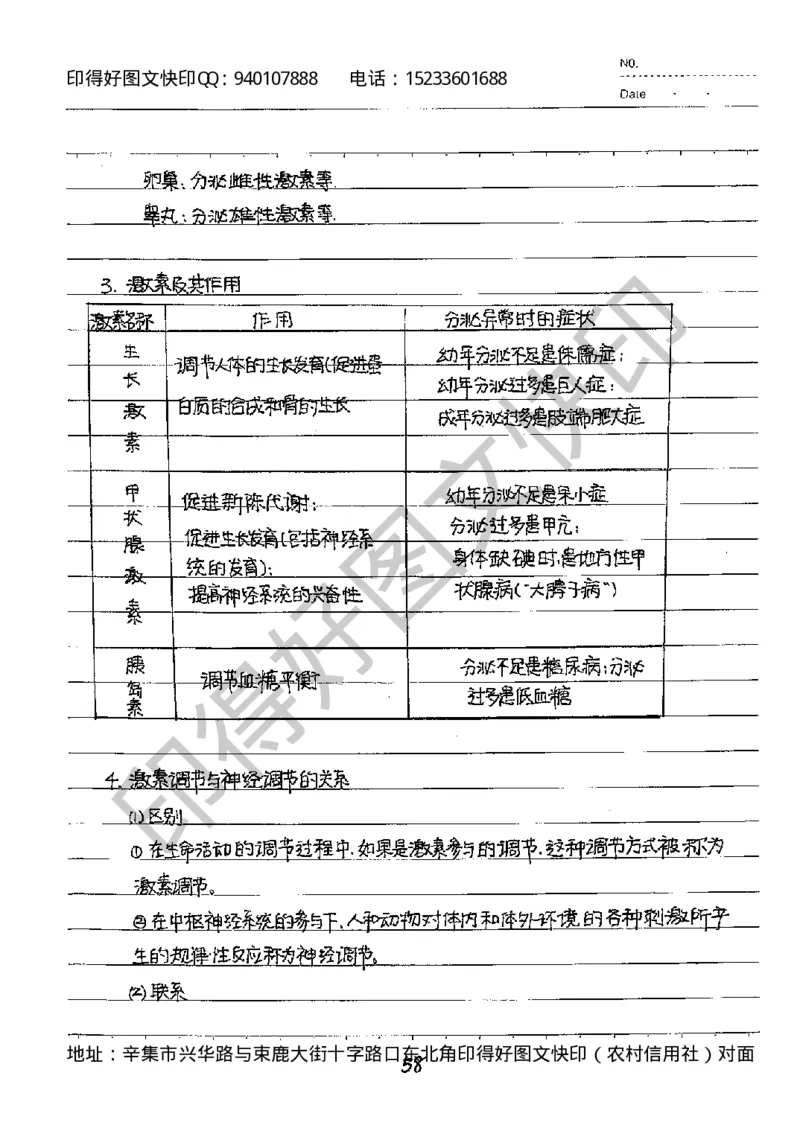 印得好图文快印QQ：940107888 电话：15233601688
NO.
Date
卵巢：分泌雌性激素等.
睾丸：分泌雄性激素等.
3. 激素及其作用
激素名称 作用 分泌异常时的症状
生长激素
调节人体的生长发育(促进蛋
白质的合成和骨的生长
幼年分泌不足患侏儒症；
幼年分泌过多患巨人症；
成年分泌过多患肢端肥大症
甲状腺激素
促进新陈代谢；
促进生长发育(包括神经系
统的发育)；
提高神经系统的兴奋性
幼年分泌不足患呆小症
分泌过多患甲亢；
身体缺碘时,患地方性甲
状腺病("大脖子病")
胰岛素
调节血糖平衡
分泌不足患糖尿病；分泌
过多患低血糖
4. 激素调节与神经调节的关系
(1)区别
①在生命活动的调节过程中,如果是激素参与的调节,这种调节方式被称为
激素调节。
②在中枢神经系统的参与下,人和动物对体内和体外环境的各种刺激所产
生的规律性反应称为神经调节。
(2)联系
地址：辛集市兴华路与束鹿大街十字路口东北角印得好图文快印（农村信用社）对面
58
印得好图文快印